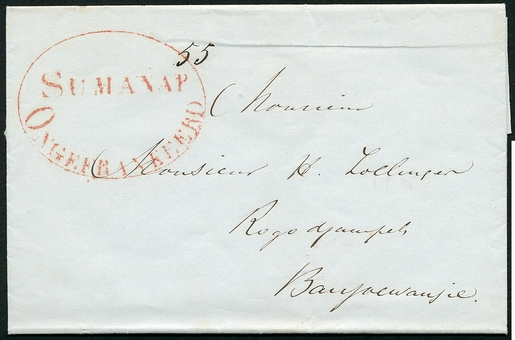 55
SUMANAP
ONGEFRANKEERD
Monsieur
Monsieur H. Zollinger
Rogodjampeh
Banjoewangie.